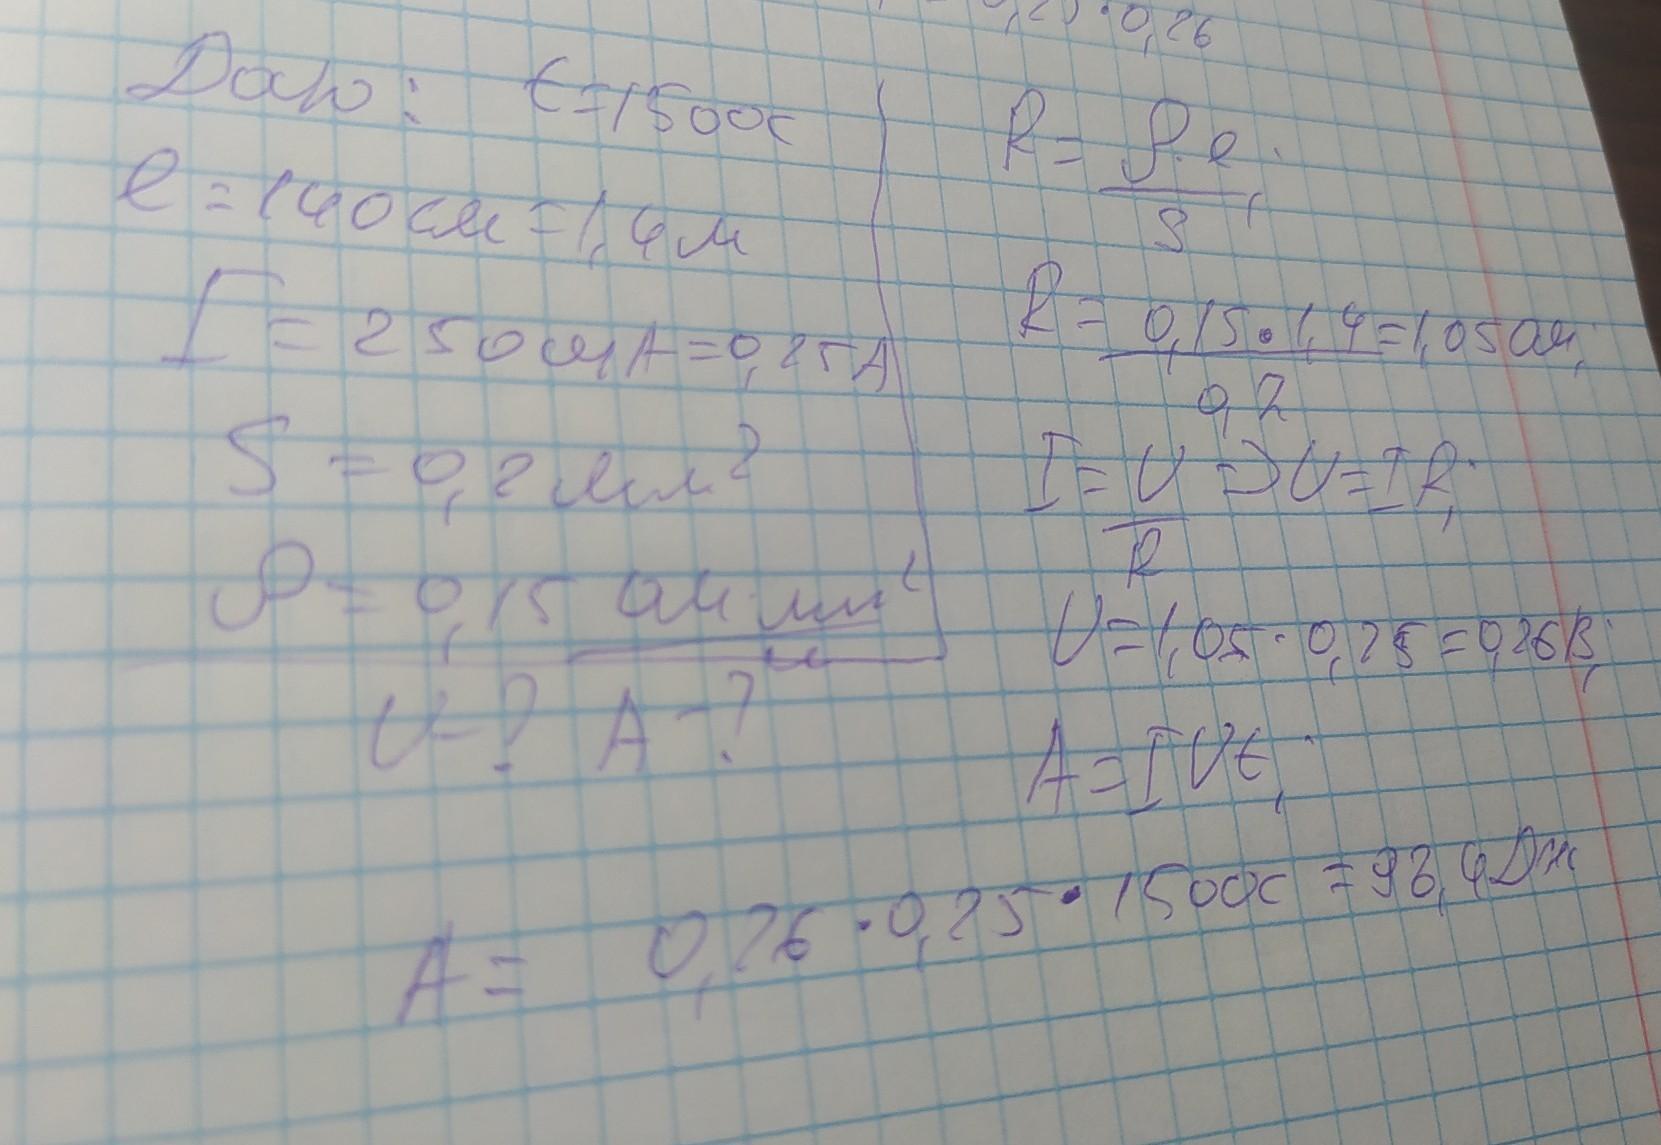 0,25·0,26
Дано: t=1500с
l=140см=1,4м
I=250мА=0,25А
S=0,2мм²
ρ=0,15 Ом мм²
м
U-? A-?
R=ρ·l
S
R=0,15·1,4=1,05Ом;
0,2
I=U⊃U=IR;
R
U=1,05·0,25=0,26В;
A=IUt;
A=0,26·0,25·1500с=98,4Дж